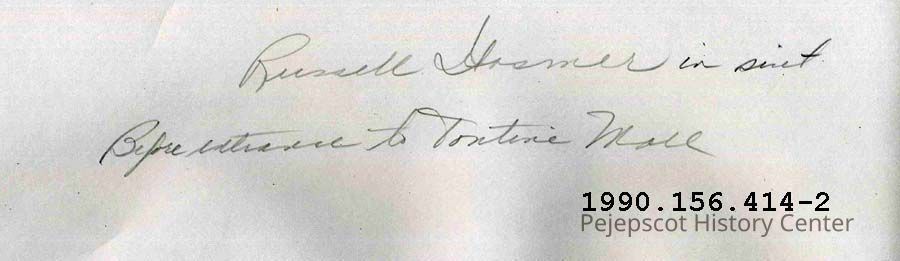 Russell Hosmer in suit
Before entrance to Tontine Mall
1990.156.414-2
Pejepscot History Center